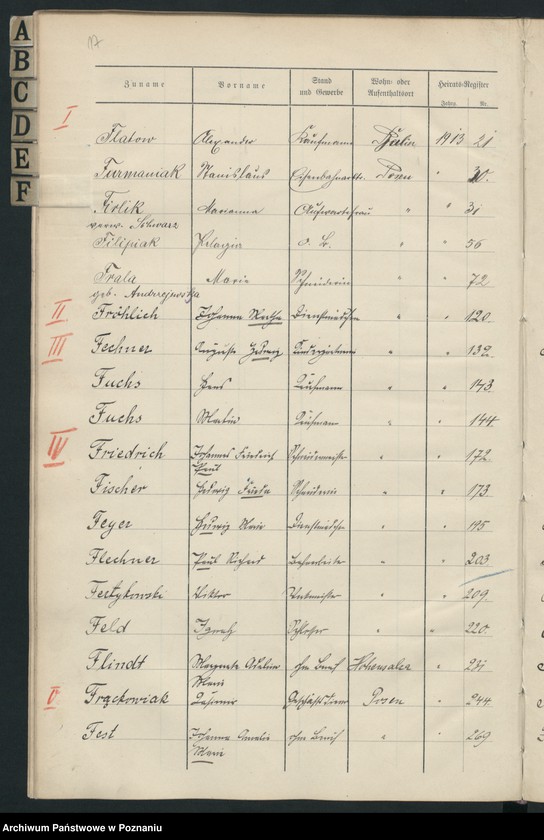 A
B
C
D
E
F
17
Zuname Vorname Stand und Gewerbe Wohn- oder Aufenthaltsort Heirats-Register
Jahrg. Nr.
I
Flatow Alexander Kaufmann Berlin 1913 21
Furmaniak Stanislaus Posen " 30.
Firlik Marianna Aufwartefrau " " 31
verw. Schwarz
Filipiak Pelagia o. B. " " 56
Frala Marie Schneiderin " " 72
geb. Andrzejewska
II
Fröhlich Johanna Martha Dienstmädchen " " 120
III
Fechner Auguste Hedwig " " 132
Fuchs Hans Kaufmann " " 143
Fuchs Martin Kaufmann " " 144
IV
Friedrich Johannes Friedrich Schneidermeister " " 172
Paul
Fischer Hedwig Schneiderin " " 173
Feyer Hedwig Marie Dienstmädchen " " 195
Flechner Paul Richard " " 203
Fertykowski Viktor " " 209
Feld Ignatz Schlosser " " 220
Flindt Margarete Adeline ohne Beruf Hohensalza " 231
Marie
V
Frąckowiak Kasimir Posen " 244
Fest Johanna Amalie ohne Beruf " " 269
Marie
Archiwum Państwowe w Poznaniu